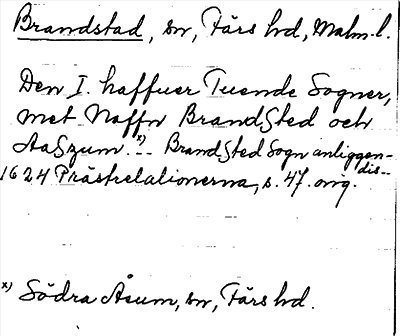 Brandstad, sn, Färs hd, Malm. l.
Den I. haffuer Tuende Sogner,
met Naffn BrandSted och
AaSzum. x) -- BrandSted Sogn anliggen-
dis--
1624 Prästrelationerna, s. 47. orig.
x) Södra Åsum, sn, Färs hd.